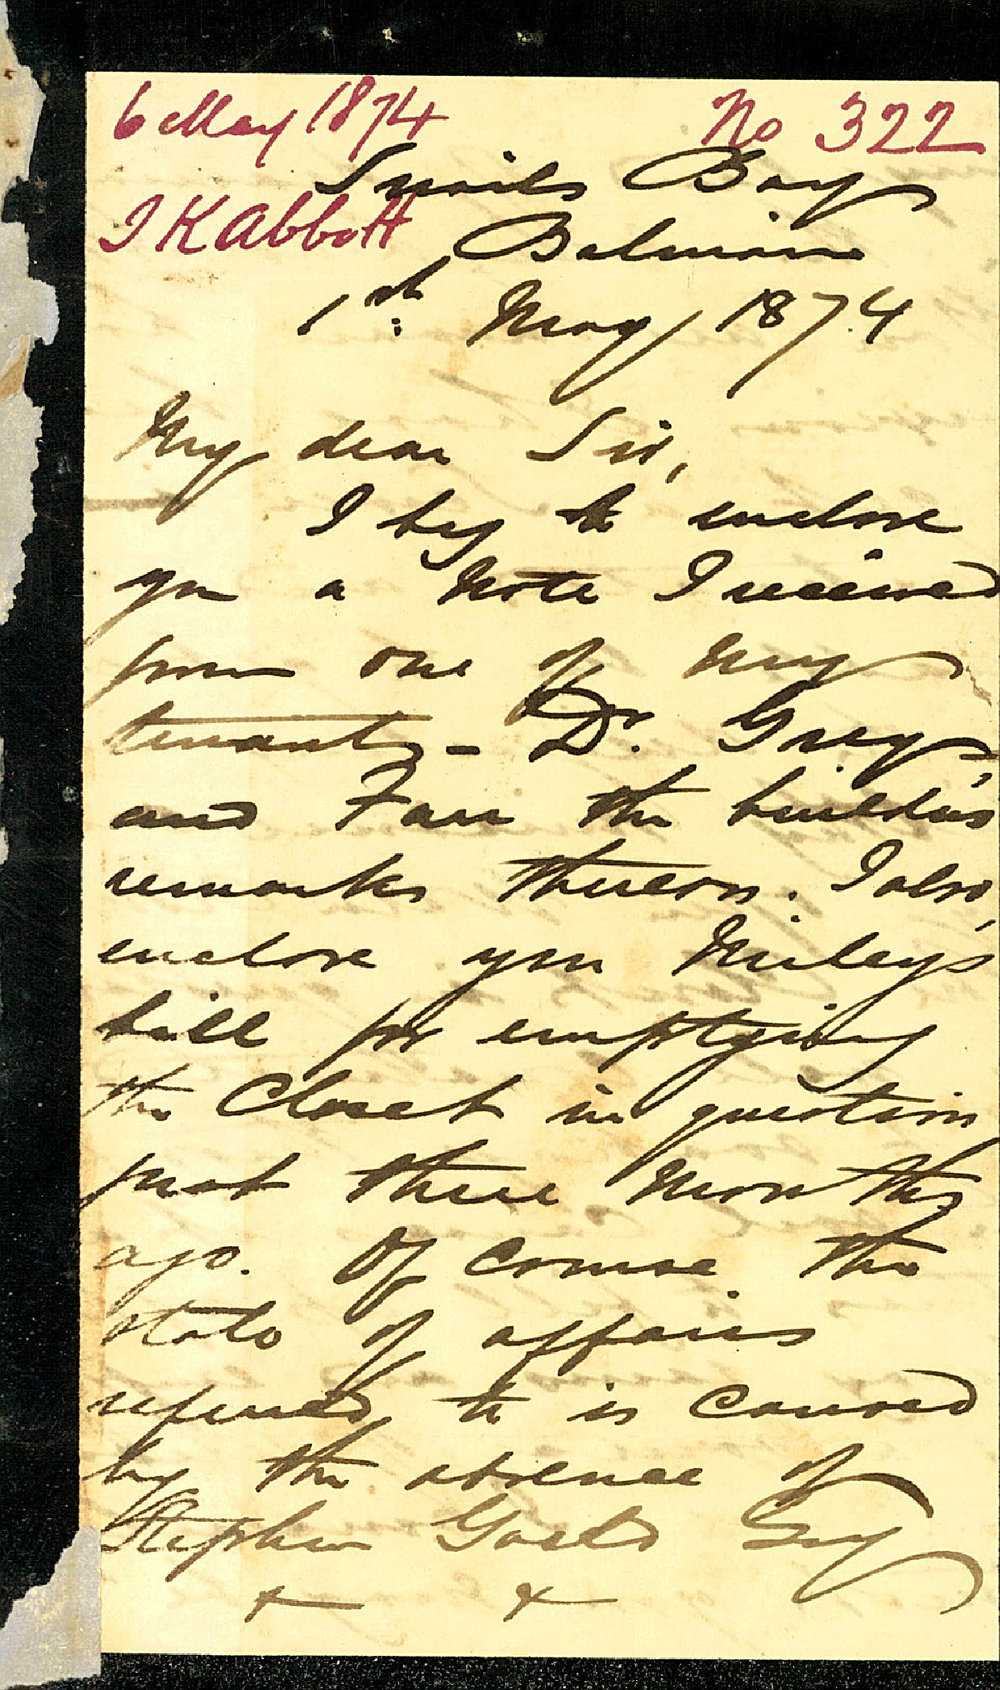 6 May 1874 No 322
Snails Bay
J K Abbott
Balmain
1st. May 1874
My dear Sir,
I beg to enclose
you a note I received
from one of my
tenants - Dr. Grey,
and Farr the builder's
remarks thereon. I also,
enclose you Miley's
bill for emptying
the Closet in question
just three months
ago. Of course the
state of affairs
referred to is caused
by the absence of
Stephen Goold Esq